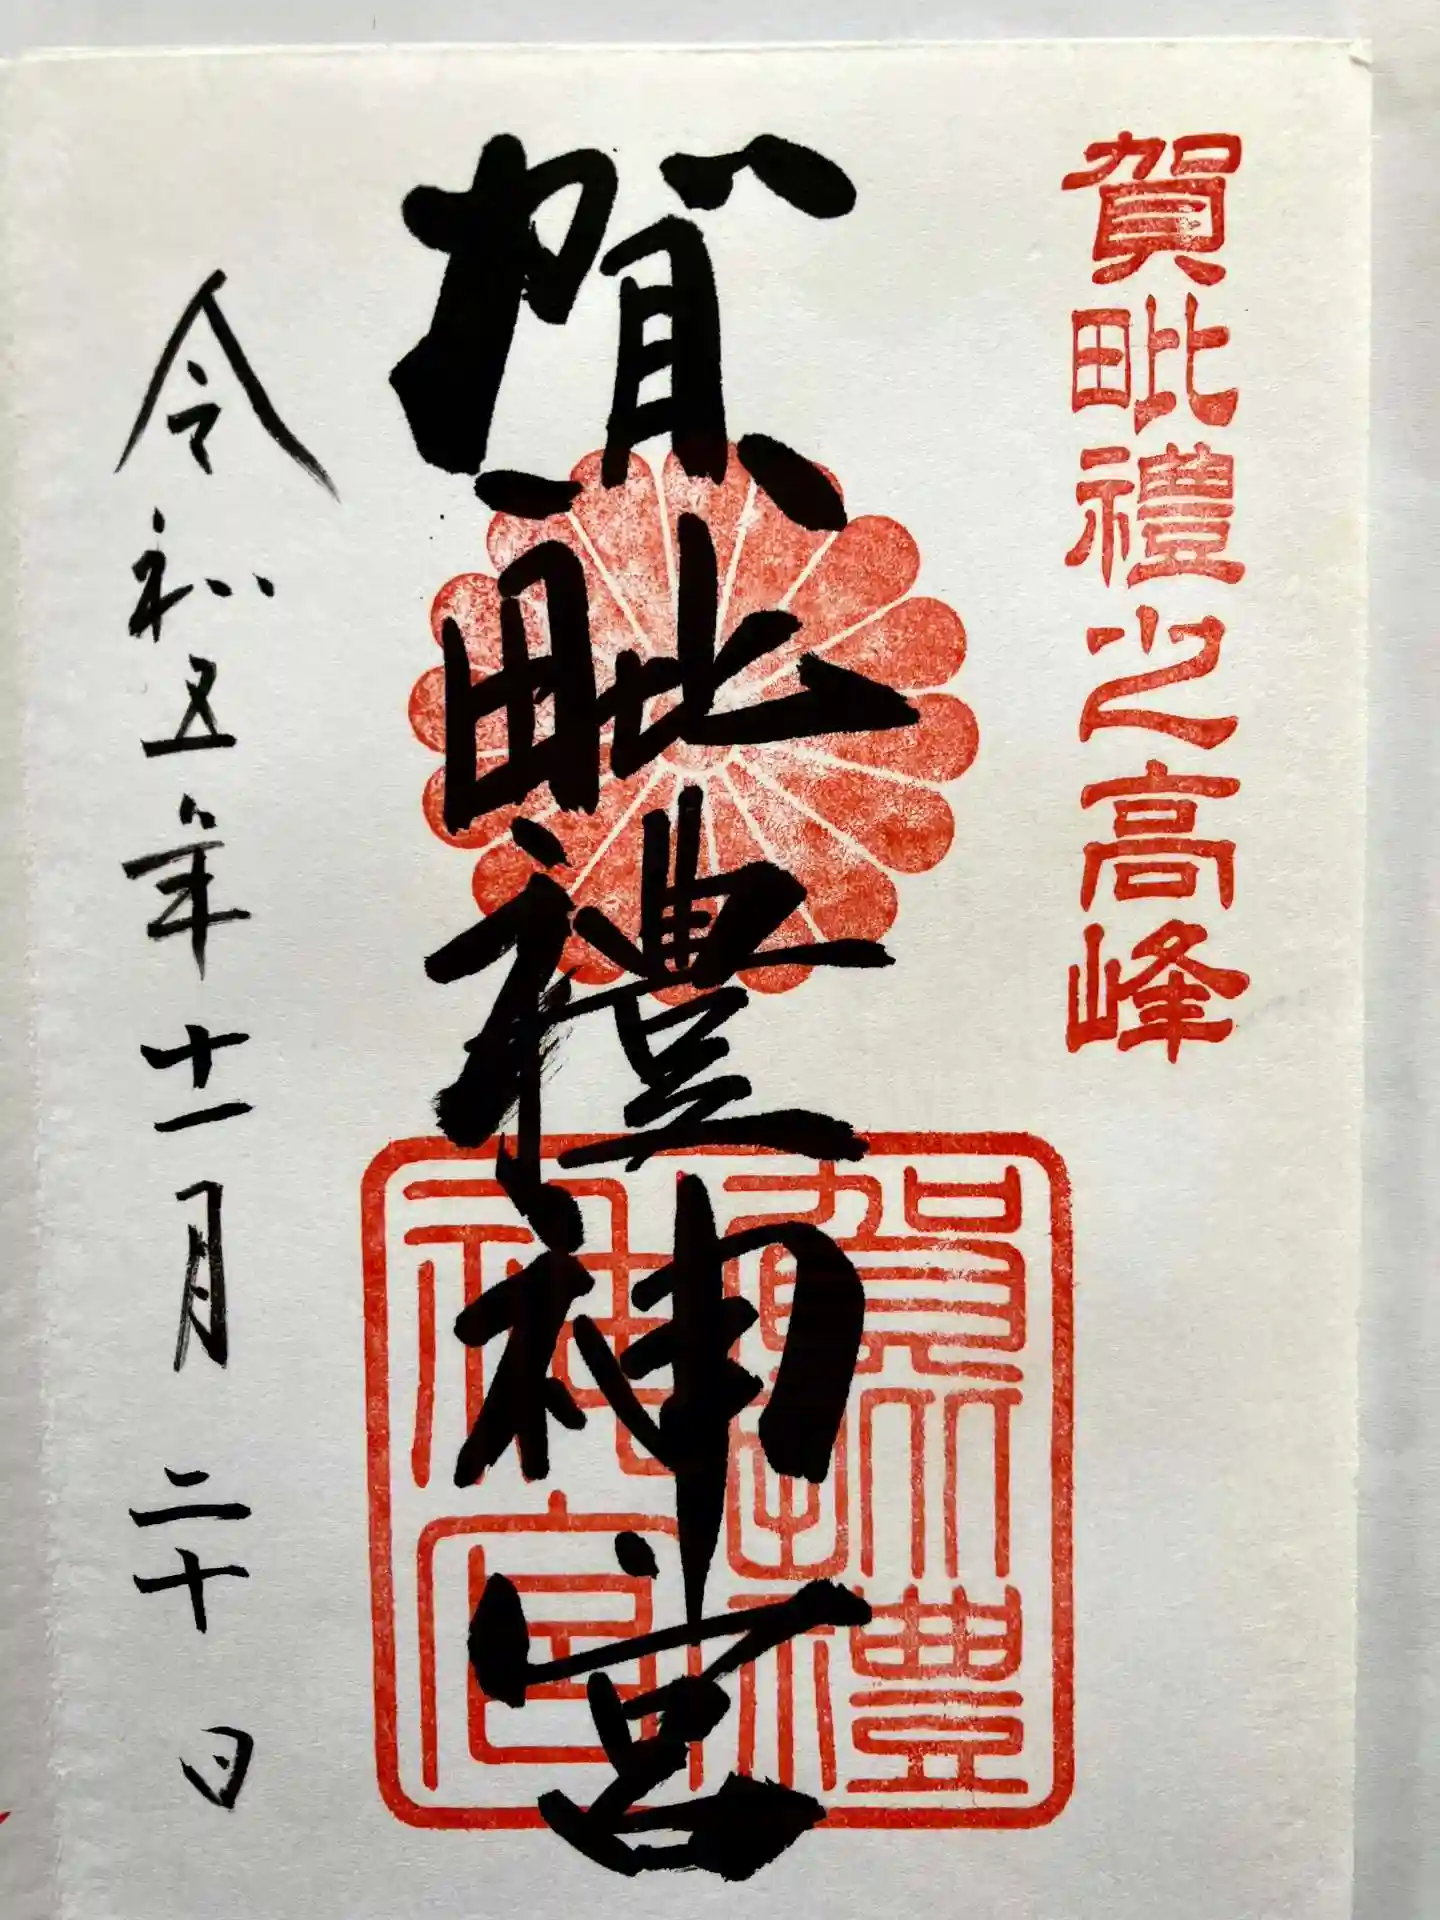 賀毗禮之高峰
賀毗禮神宮
賀毗禮
神宮
令和五年十一月二十日